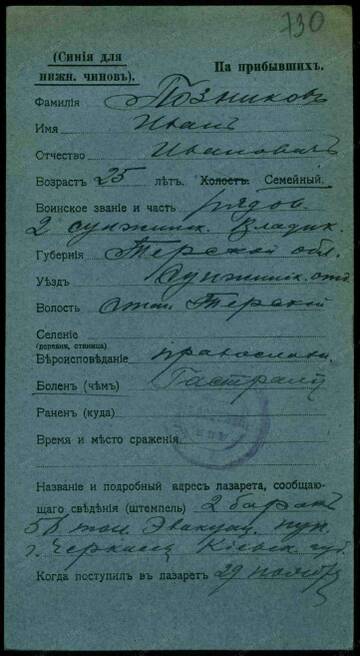 730
(Синія для
нижн. чиновъ).
На прибывшихъ.
Фамилія Позниковъ
Имя Иванъ
Отчество Ивановичъ
Возрастъ 25 лѣтъ. Холостъ. Семейный.
Воинское званіе и часть рядов.
2 сунженск. Владик.
Губернія Терской обл.
Уѣздъ Сунженск. отд
Волость Терскій
Селеніе
(деревня, станица)
Вѣроисповѣданіе православн.
Боленъ (чѣмъ) Гастралг
Раненъ (куда)
Время и мѣсто сраженія
Названіе и подробный адресъ лазарета, сообщаю-
щаго свѣдѣнія (штемпель) 2 баракъ
Эвакуац. пун.
г. Черкассы Кіевск. губ.
Когда поступилъ въ лазаретъ 29 ноября